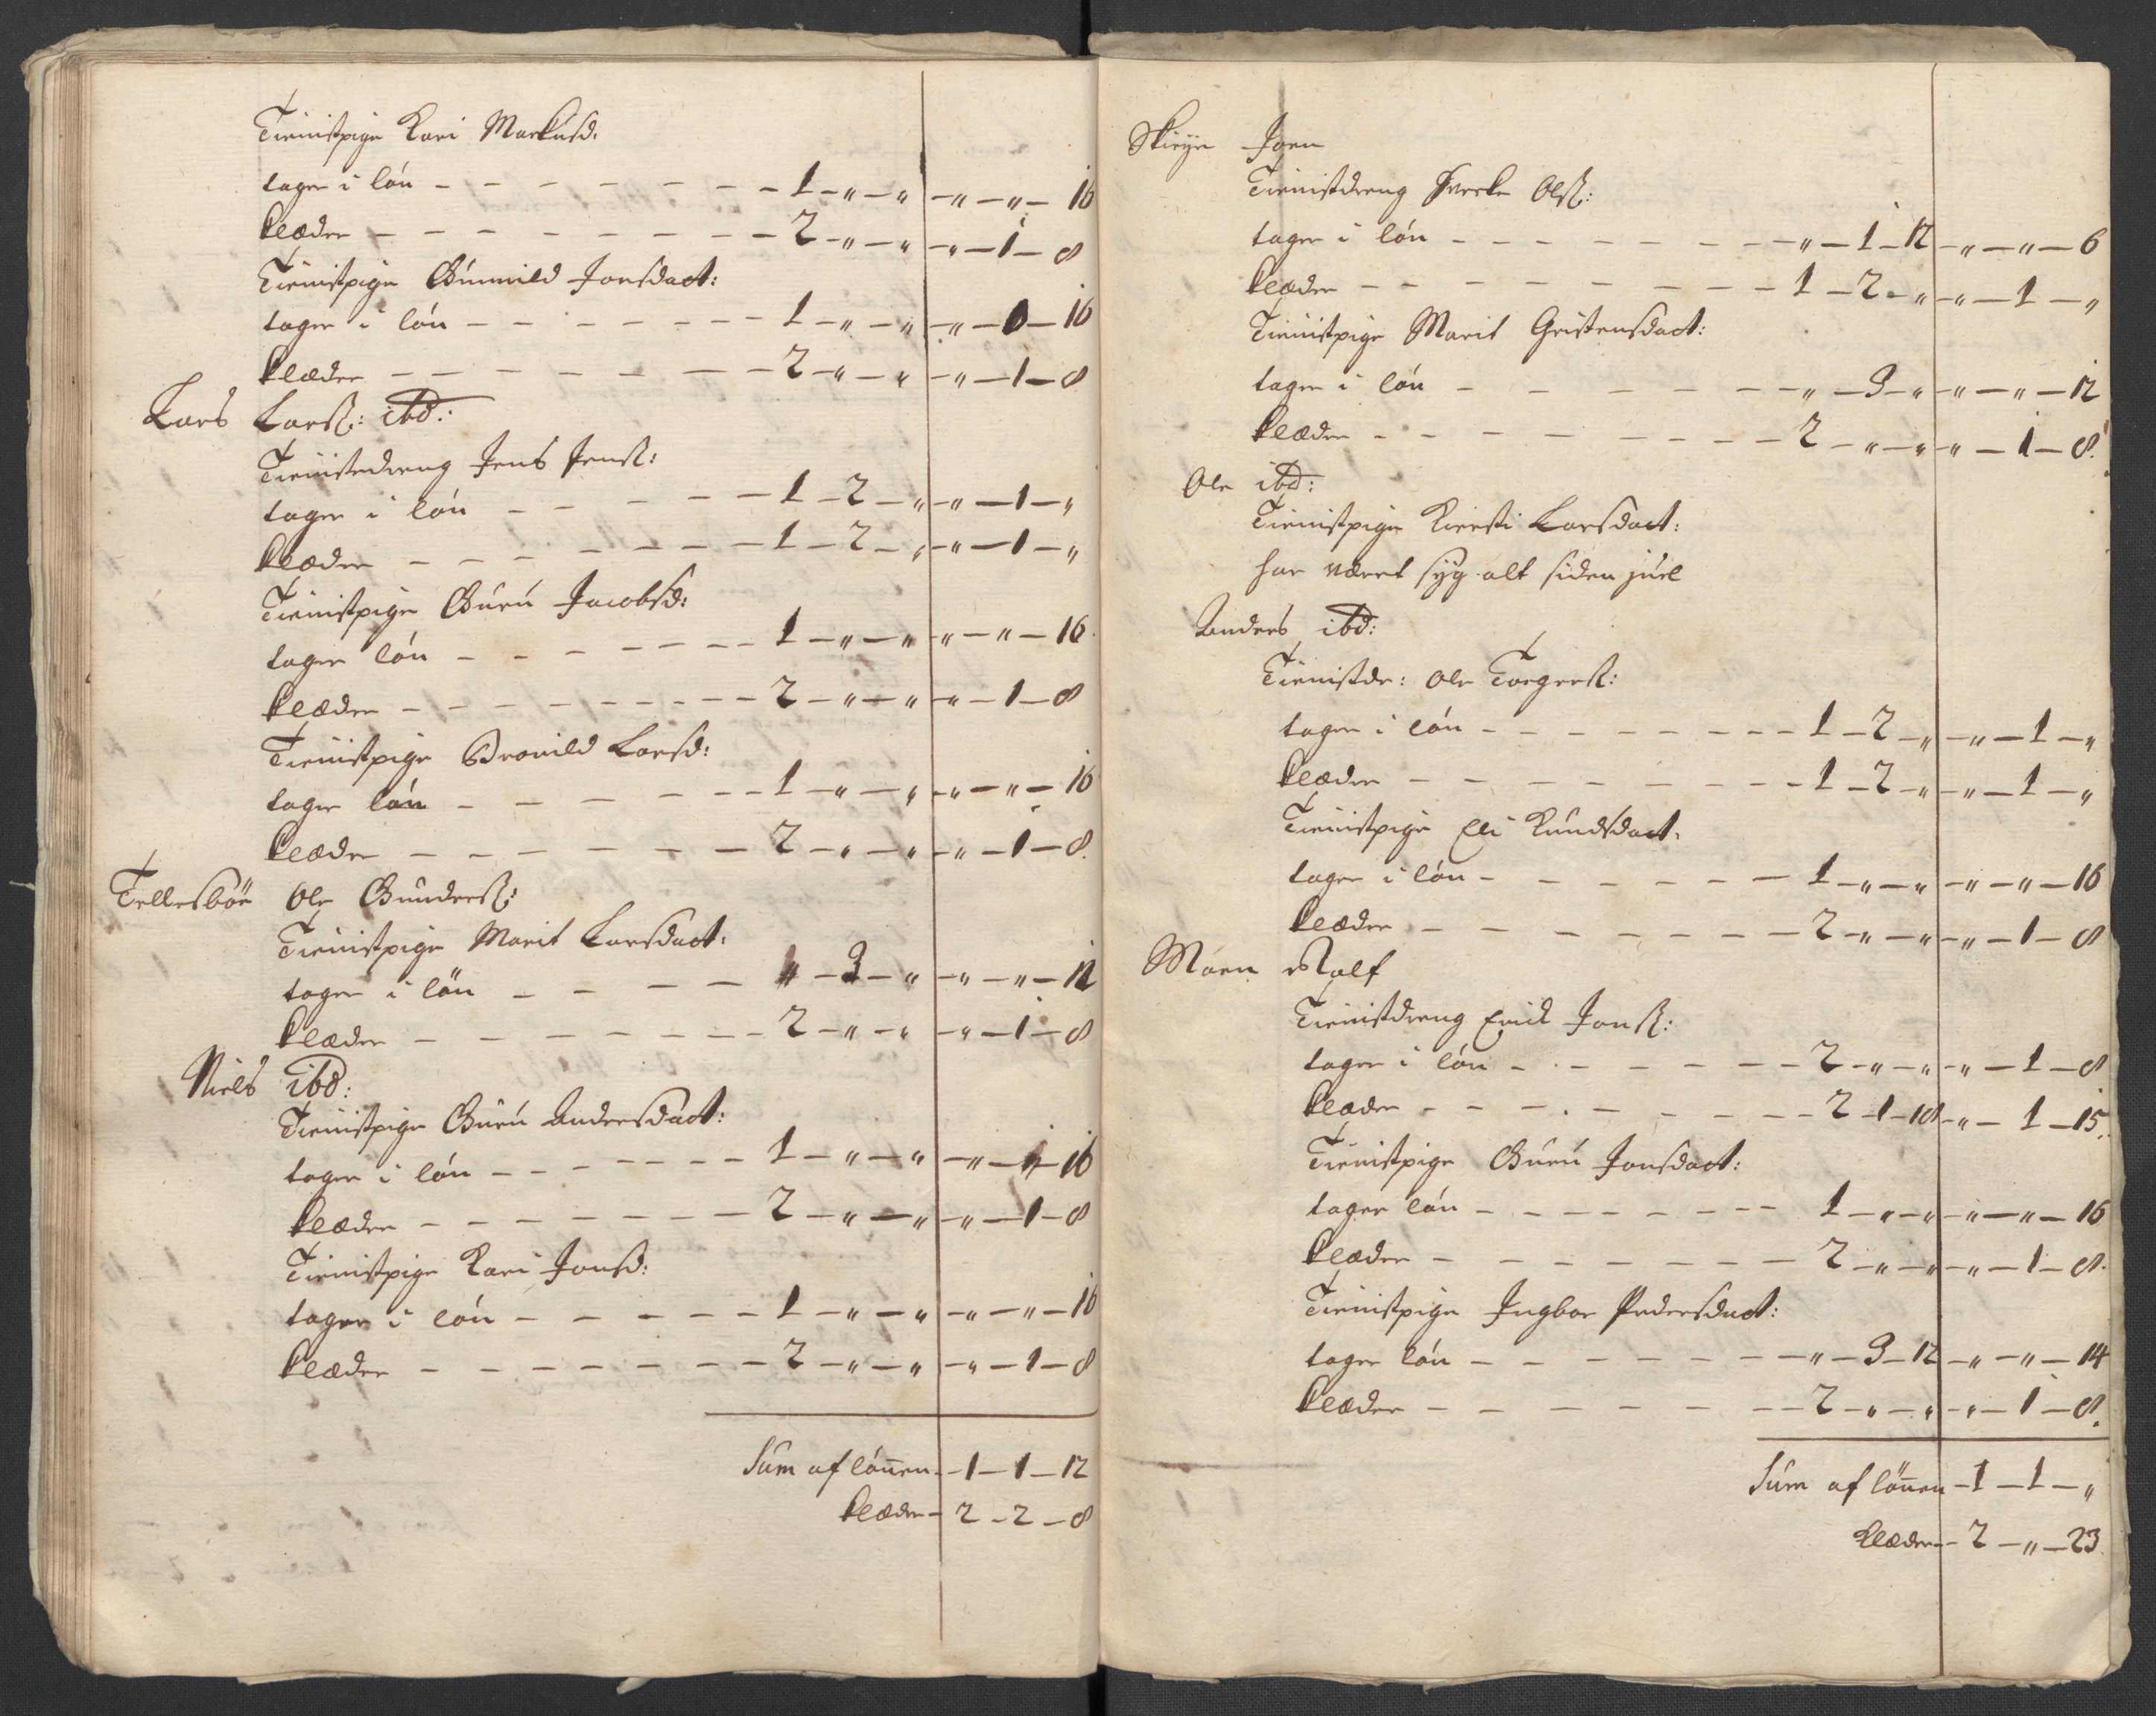 Tienistpige Kari Markusd:
tager i lön - - - - - - - 1 - „ - „ - „ - „ - 16
klæder - - - - - - - - 2 - „ - „ - „ - 1 - 8
Tienistpige Gunnild Jonsdaat:
tager i lön - - - - - - - 1 - „ - „ - „ - 0 - 16
klæder - - - - - - - 2 - „ - „ - „ - 1 - 8
Lars Larss: ibd:
Tienistedreng Jens Jenss:
tager i lön - - - - - 1 - 2 - „ - „ - 1 - „
klæder - - - - - - - 1 - 2 - „ - „ - 1 - „
Tienistpige Guru Jacobsd:
tager lön - - - - - - - 1 - „ - „ „ - „ - 16
klæder - - - - - - - - 2 - „ - „ - „ - 1 - 8
Tienistpige Bronild Larsd:
tager lön - - - - - - 1 - „ - „ - „ - „ - 16
klæder - - - - - - - 2 - „ - „ - „ - 1 - 8
Tellesböe Ole Gunderss:
Tienistpige Marit Larsdaat:
tager i lön - - - - „ - 3 - „ - „ - „ - 12
klæder - - - - - - - 2 - „ - „ - „ - 1 - 8
Niels ibd:
Tienistpige Guru Andersdaat:
tager i lön - - - - - - - 1 - „ - „ - „ - „ - 16
klæder - - - - - - - 2 - „ - „ - „ - 1 - 8
Tienistpige Kari Jonsd:
tager i lön - - - - - 1 - „ - „ - „ - „ - 16
klæder - - - - - - - 2 - „ - „ - „ - 1 - 8
Sum af lönnen - 1 - 1 - 12
klæder - 2 - 2 - 8
Skieye Joen
Tienistdreng Olss:
tager i lön - - - - - - - „ - 1 - 12 - „ - „ - 6
klæder - - - - - - - - 1 - 2 - „ - „ - 1 - „
Tienistpige Marit Christensdaat:
tager i lön - - - - - - „ - 3 - „ - „ - „ - 12
klæder - - - - - - - - 2 - „ - „ „ - 1 - 8
Ole ibd:
Tienistpige Kiersti Larsdaat:
har været syg alt siden juel
Anders ibd:
Tienistdr: Ole Torgerss:
tager i lön - - - - - - - - 1 - 2 - „ - „ - 1 - „
klæder - - - - - - - - 1 - 2 - „ - „ - 1 - „
Tienistpige Eli Knudsdaat:
tager i lön - - - - - - 1 - „ - „ - „ - „ - 16
klæder - - - - - - - 2 - „ - „ - „ - 1 - 8
Moen Rolf
Tienistdreng Erick Jonss:
tager i lön - - - - - - - 2 - „ - „ - „ - 1 - 8
klæder - - - - - - - - 2 - 1 - 18 - „ - 1 - 15
Tienistpige Guru Jonsdaat:
tager lön - - - - - - - 1 - „ - „ - „ - „ - 16
klæder - - - - - - - 2 - „ - „ - „ - 1 - 8
Tienistpige Ingbor Pedersdaat:
tager lön - - - - - - - „ - 3 - 12 - „ - „ - 14
klæder - - - - - - - 2 - „ - „ - „ - 1 - 8
Sum af lönnen - 1 - 1 - „
klæder - 2 - „ - 23